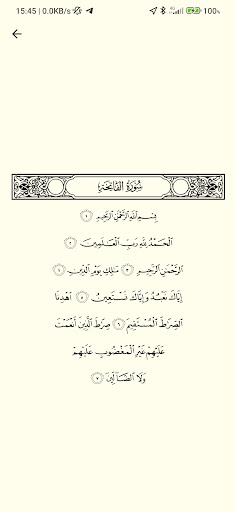 15:45 | 0.0KB/s
100%
سُورَةُ الفَاتِحَةِ
بِسْمِ اللَّهِ الرَّحْمَٰنِ الرَّحِيمِ ١
الْحَمْدُ لِلَّهِ رَبِّ الْعَالَمِينَ ٢
الرَّحْمَٰنِ الرَّحِيمِ ٣ مَالِكِ يَوْمِ الدِّينِ ٤
إِيَّاكَ نَعْبُدُ وَإِيَّاكَ نَسْتَعِينُ ٥ اهْدِنَا
الصِّرَاطَ الْمُسْتَقِيمَ ٦ صِرَاطَ الَّذِينَ أَنْعَمْتَ
عَلَيْهِمْ غَيْرِ الْمَغْضُوبِ عَلَيْهِمْ
وَلَا الضَّالِّينَ ٧